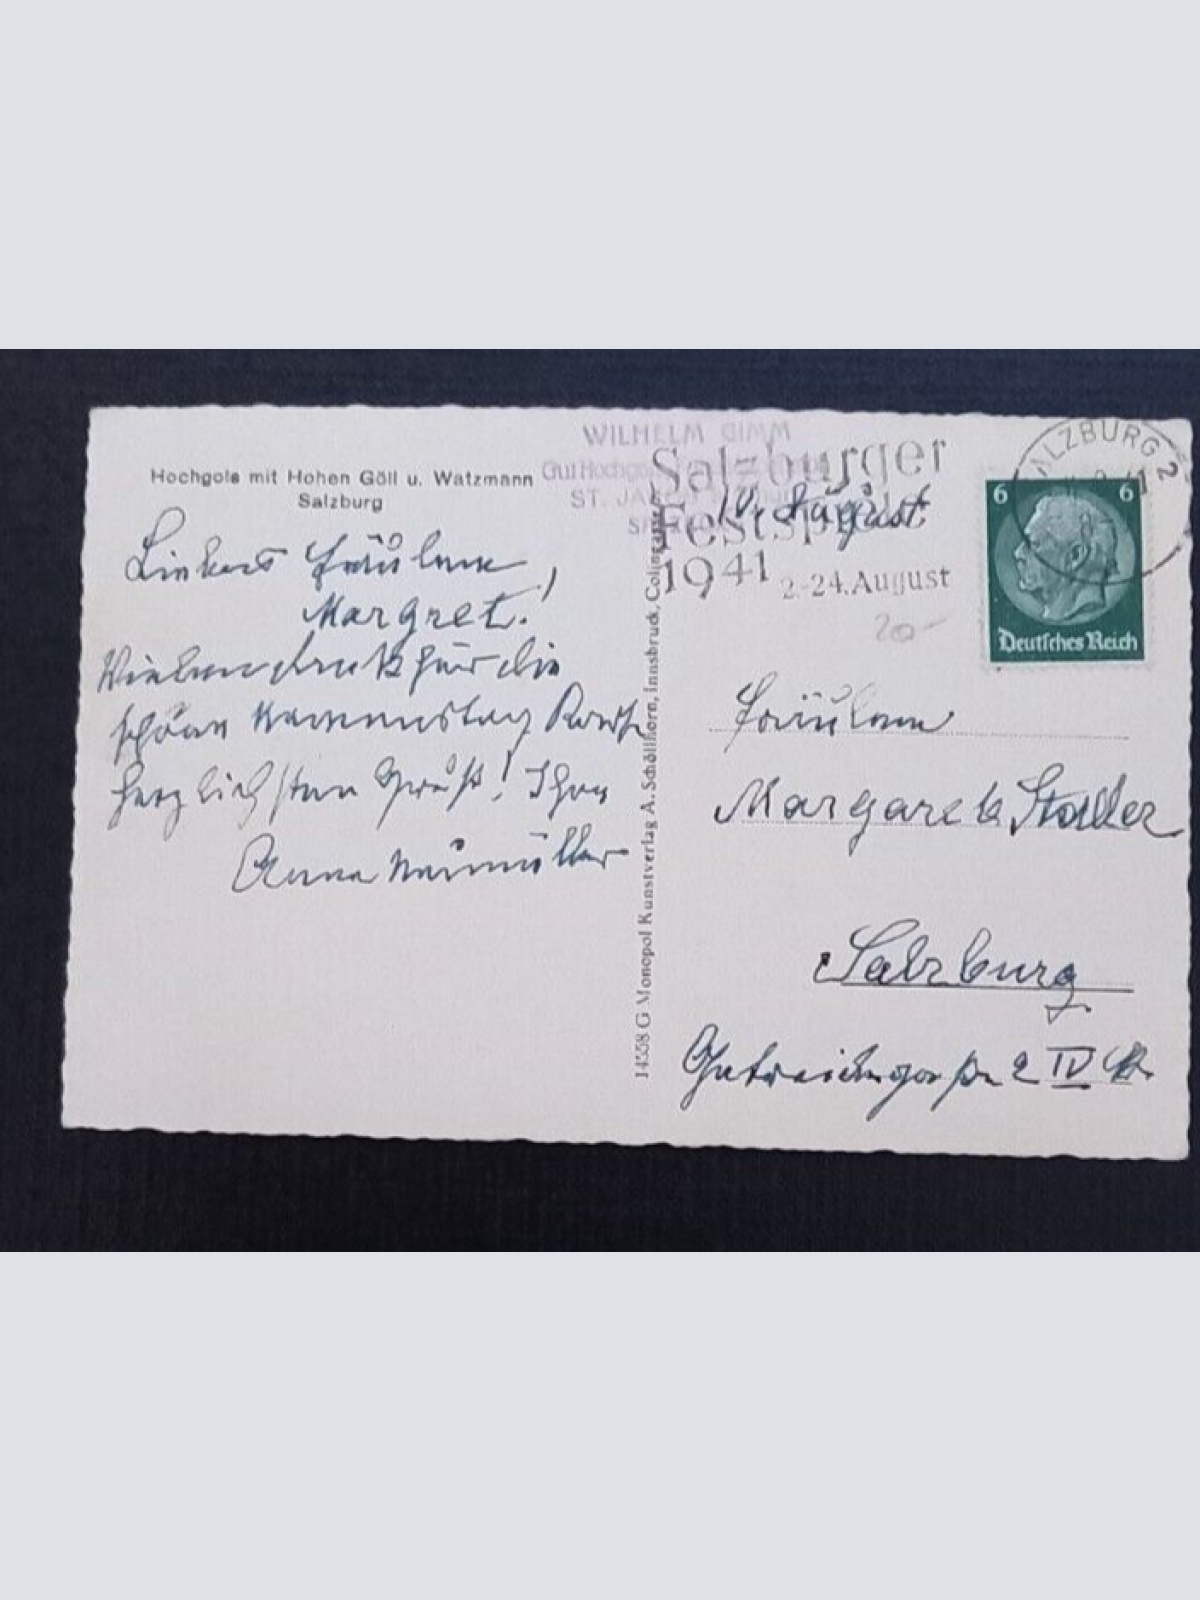 Hochgols mit Hohen Göll u. Watzmann
Salzburg
Liebes Fräulein
Margret!
Vielen Dank für die
schöne Namenstag Karte
herzlichsten Gruß! Ihre
Anna
WILHELM GIMM
Gut Hochgols
ST. JAKOB
Salzburger
Festspiele
1941 2.-24. August
10. August
SALZBURG 2
6 6
Deutsches Reich
20-
14558 G Monopol Kunstverlag A. Schöllhorn, Innsbruck, Colingasse
Fräulein
Margarete Stadler
Salzburg
2 IV